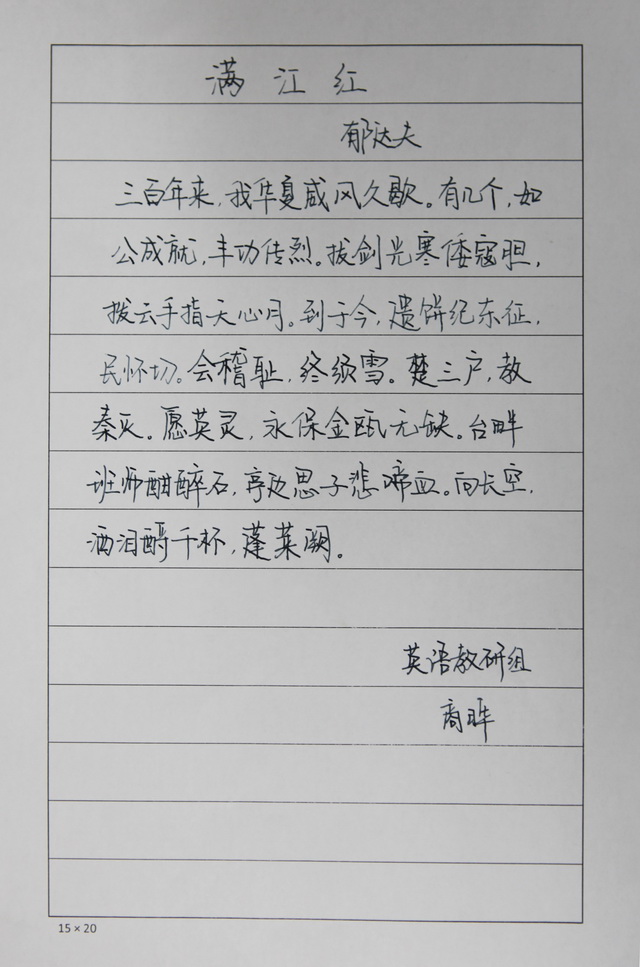 满江红
郁达夫
三百年来,我华夏威风久歇。有几个,如
公成就,丰功传烈。拔剑光寒倭寇胆,
拨云手指天心月。到于今,遗饼纪东征,
民怀切。会稽耻,终须雪。楚三户,教
秦灭。愿英灵,永保金瓯无缺。台畔
班师酣醉石,亭边思子悲啼血。向长空,
洒泪酹千杯,蓬莱阙。
英语教研组
商晔
15×20